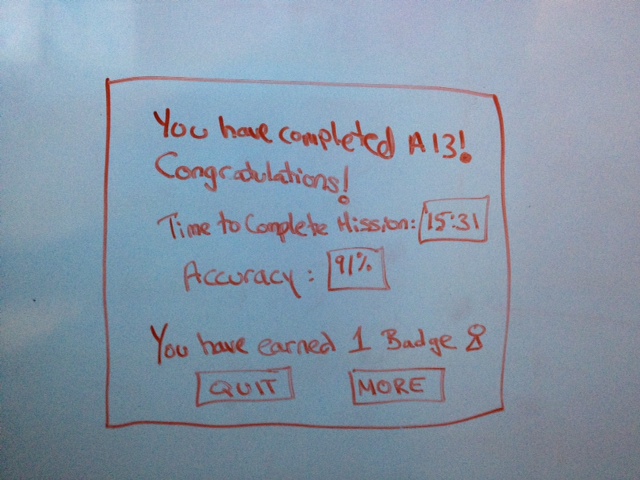 You have completed A13!
Congratulations!
Time to Complete Mission: 15:31
Accuracy: 91%
You have earned 1 Badge
QUIT MORE